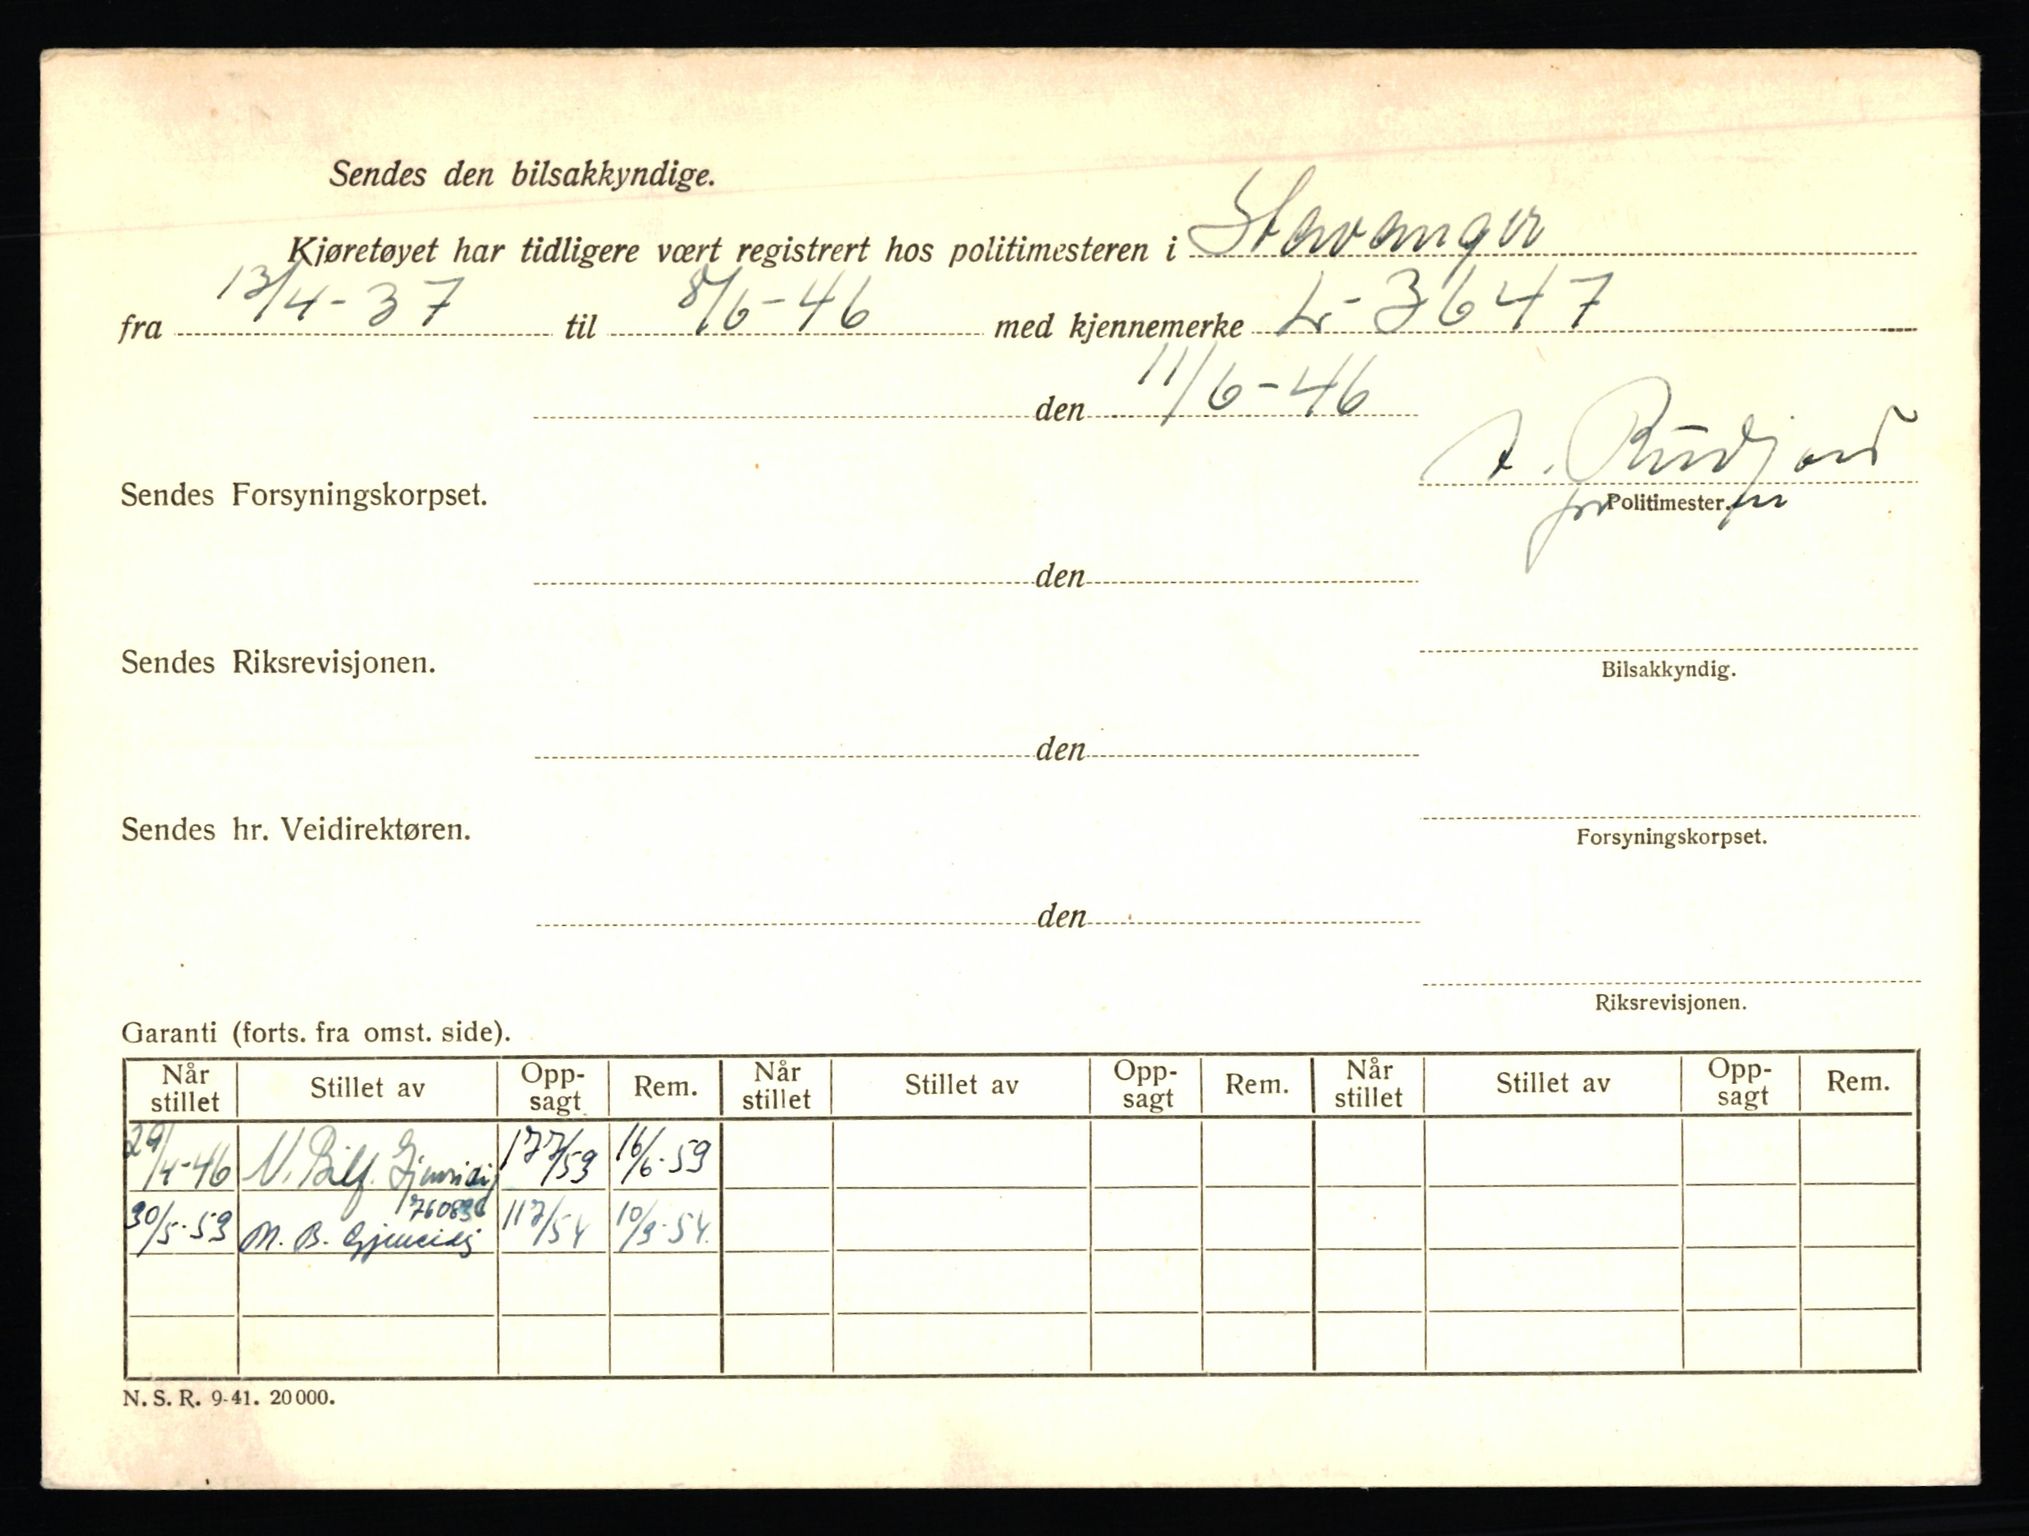 Sendes den bilsakkyndige.
Kjøretøyet har tidligere vært registrert hos politimesteren i Stavanger
fra 13/4-37 til 8/6-46 med kjennemerke L-3647
den 11/6-46
Sendes Forsyningskorpset.
Politimester.
den
Sendes Riksrevisjonen.
Bilsakkyndig.
den
Sendes hr. Veidirektøren.
Forsyningskorpset.
den
Riksrevisjonen.
Garanti (forts. fra omst. side).
Når stillet Stillet av Opp-sagt Rem. Når stillet Stillet av Opp-sagt Rem. Når stillet Stillet av Opp-sagt Rem.
29/4-46 N. Bilf. 16/6-59
30/5-53 10/9-54.
N. S. R. 9-41. 20 000.